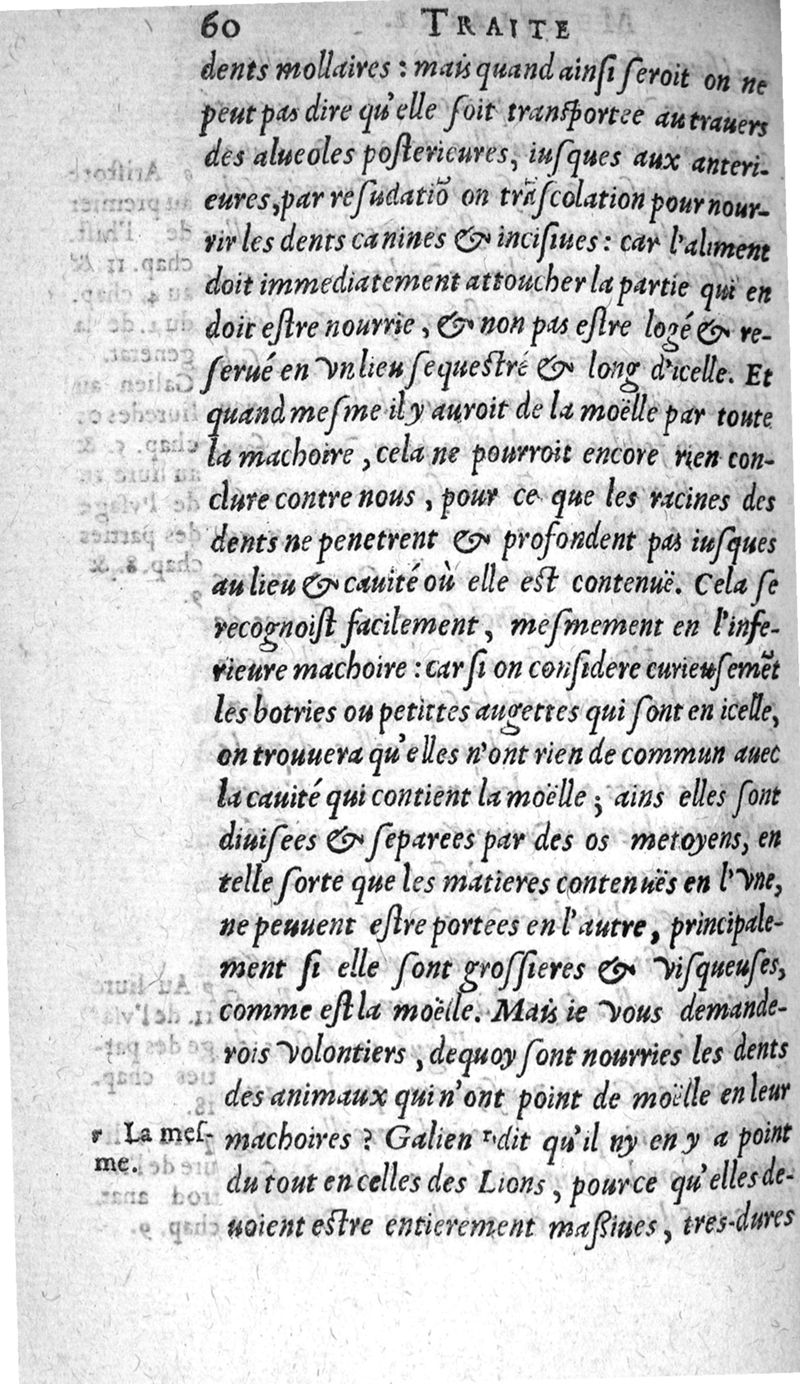 60 TRAITE
dents mollaires : mais quand ainſi ſeroit on ne
peut pas dire qu'elle ſoit transportee au trauers
des alueoles poſterieures, iuſques aux anteri-
eures, par reſudatiõ on trãſcolation pour nour-
rir les dents canines & inciſiues : car l'aliment
doit immediatement attoucher la partie qui en
doit eſtre nourrie, & non pas eſtre logé & re-
ſerué en vn lieu ſequeſtré & long d'icelle. Et
quand meſme il y auroit de la moëlle par toute
la machoire, cela ne pourroit encore rien con-
clure contre nous, pour ce que les racines des
dents ne penetrent & profondent pas iuſques
au lieu & cauité où elle eſt contenuë. Cela ſe
recognoiſt facilement, meſmement en l'infe-
rieure machoire : car ſi on conſidere curieuſemẽt
les botries ou petittes augettes qui ſont en icelle,
on trouuera qu'elles n'ont rien de commun auec
la cauité qui contient la moëlle ; ains elles ſont
diuiſees & ſeparees par des os metoyens, en
telle ſorte que les matieres contenuës en l'vne,
ne peuuent eſtre portees en l'autre, principale-
ment ſi elle ſont groſſieres & viſqueuſes,
comme eſt la moëlle. Mais ie vous demande-
rois volontiers, dequoy ſont nourries les dents
des animaux qui n'ont point de moëlle en leur
r La meſ- machoires ? Galien r dit qu'il ny en y a point
me. du tout en celles des Lions, pource qu'elles de-
uoient eſtre entierement maßiues, tres-dures